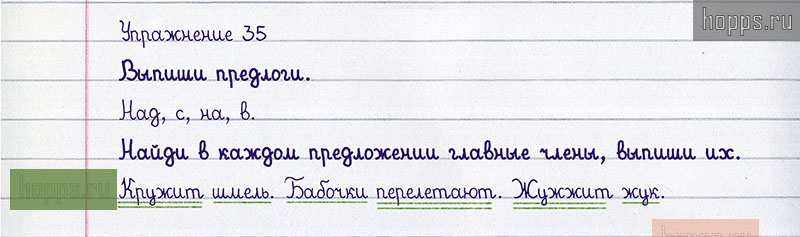 hopps.ru
Упражнение 35
Выпиши предлоги.
Над, с, на, в.
Найди в каждом предложении главные члены, выпиши их.
hopps.ru
Кружит шмель. Бабочки перелетают. Жужжит жук.
hopps.ru